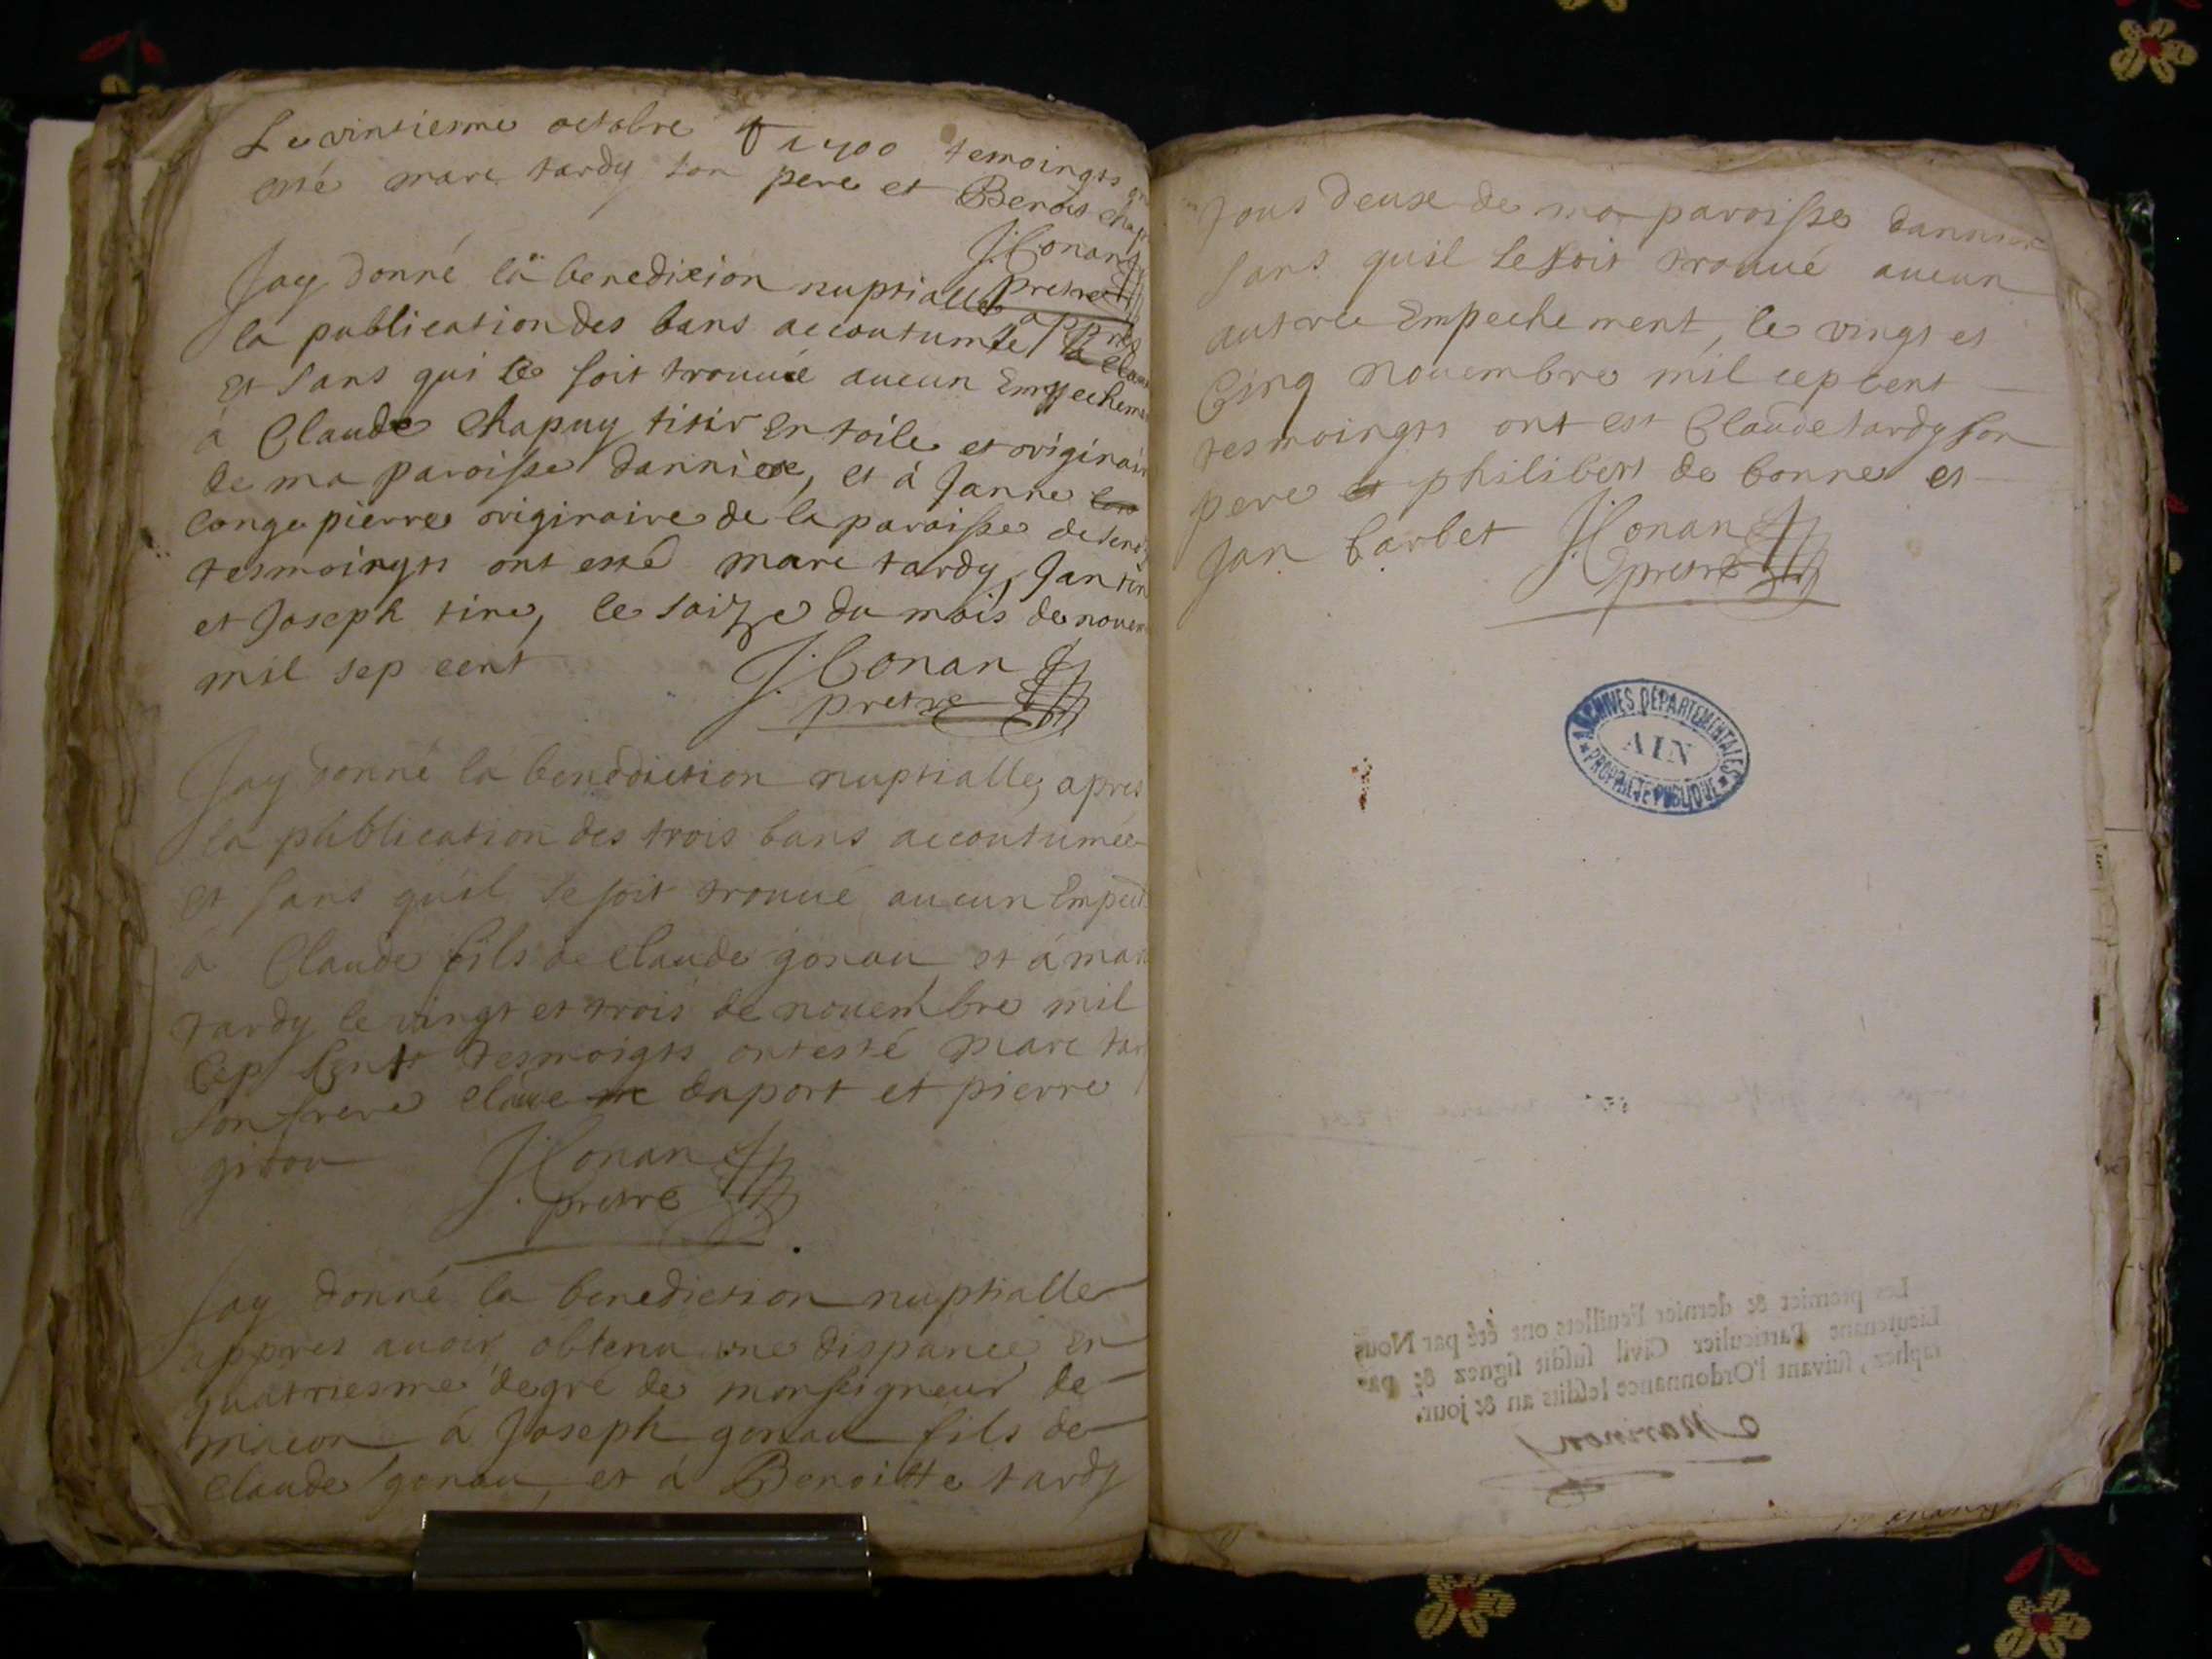 Le vintiesme octobre 1700 temoingts
esté marc tardy son pere et Benois
J. Conan
prestre
Jay donné la benedicion nuptialle appres
la publication des bans accoutumée
et sans qui se soit trouvué aucun Empecheme
à Claude Chapuy tisir En toile et originair
de ma paroisse danniere, et à Janne
longe pierre originaire de la paroisse de
tesmoingts ont esté marc tardy, Jan
et Joseph tine, le saize du mois de novem
mil sep cent
J. Conan
prestre
Jay donné la benediction nuptialle, apres
la publication des trois bans accoutumée
et sans quil se soit trouué aucun Empech
à Claude fils de claude gonau et à mar
tardy le vingt et trois de nouembre mil
cep Cent tesmoigts ont esté marc tar
son frere claude duport et pierre
gitou
J. Conan
prestre
Jay donné la benediction nuptialle
appres auoir obtenu une dispance En
quatriesme degré de monseigneur de
macon à Joseph gonau fils de
claude gonau, et à Benoitte tardy
tous deuse de ma paroisse
sans quil se soit trouué aucun
autre Empechement, le vingt et
Cinq nouembre mil cep cent
tesmoingts ont est Claude tardy son
pere philibert de bonne et
Jan barbet
J. Conan
prestre
ARCHIVES DÉPARTEMENTALES
AIN
PROPRIETE PUBLIQUE
Les premier & dernier Feuillets ont été par Nous
Lieutenant Particulier Civil susdit signez & pa-
raphez, suivant l'Ordonnance lesdits an & jour.